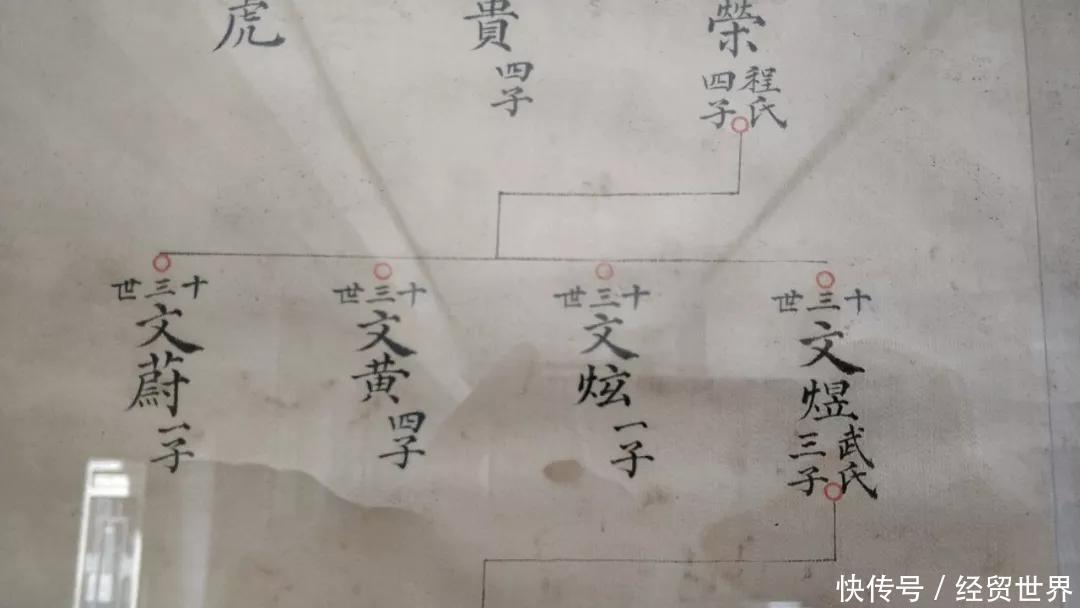 榮
程氏
四子
貴
四子
虎
十三世
文煜
武氏
三子
十三世
文炫
一子
十三世
文黄
四子
十三世
文蔚
一子
快传号 / 经贸世界